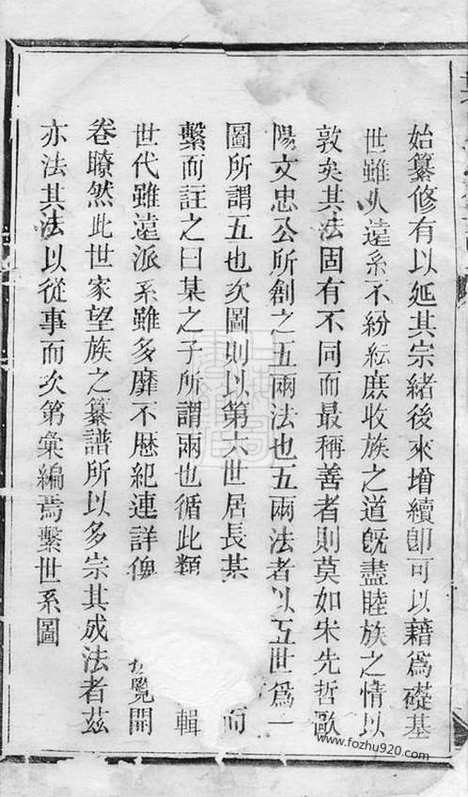 始纂修有以延其宗緒後來增續卽可以藉爲礎基
世雖久遠系不紛紜庶收族之道旣盡睦族之情以
敦矣其法固有不同而最稱善者則莫如宋先哲歐
陽文忠公所創之五兩法也五兩法者以五世爲一
圖所謂五也次圖則以第六世居長某 而
繫而註之曰某之子所謂兩也循此類 輯
世代雖遠派系雖多靡不歷紀連詳俾 覽開
卷瞭然此世家望族之纂譜所以多宗其成法者茲
亦法其法以從事而次第彙編焉繫世系圖
www.fozhu920.com